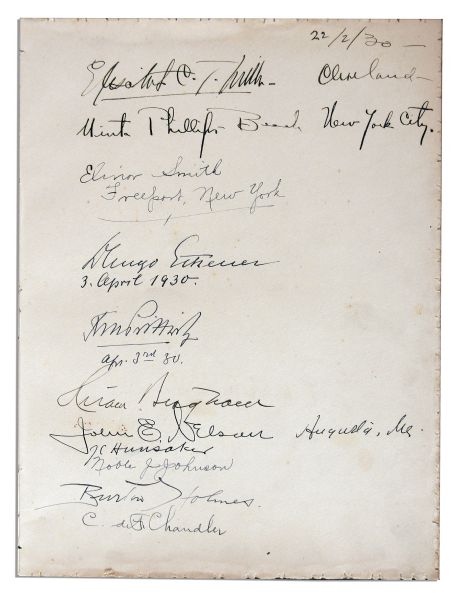 22/2/30 —
Elisabeth C. T. Miller — Cleveland —
Phillips Beach New York City.
Elinor Smith
Freeport, New York
Dr Hugo Eckener
3. April 1930.
Apr. 3rd 30.
Hiram Bingham
John E. Nelson Augusta, Me.
JC Hunsaker
Noble J. Johnson
Burton Holmes.
C. deF. Chandler